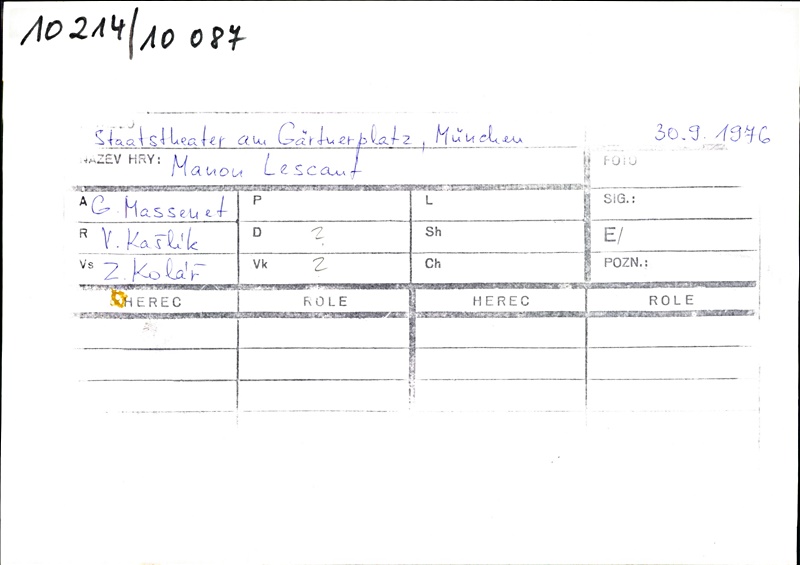 10 214/10 087
Staatstheater am Gärtnerplatz, München 30.9.1976
NÁZEV HRY: Manon Lescaut FOTO
A G. Massenet P L SIG.:
R V. Kašlík D ? Sh E/
Vs Z. Kolář Vk ? Ch POZN.:
HEREC ROLE HEREC ROLE